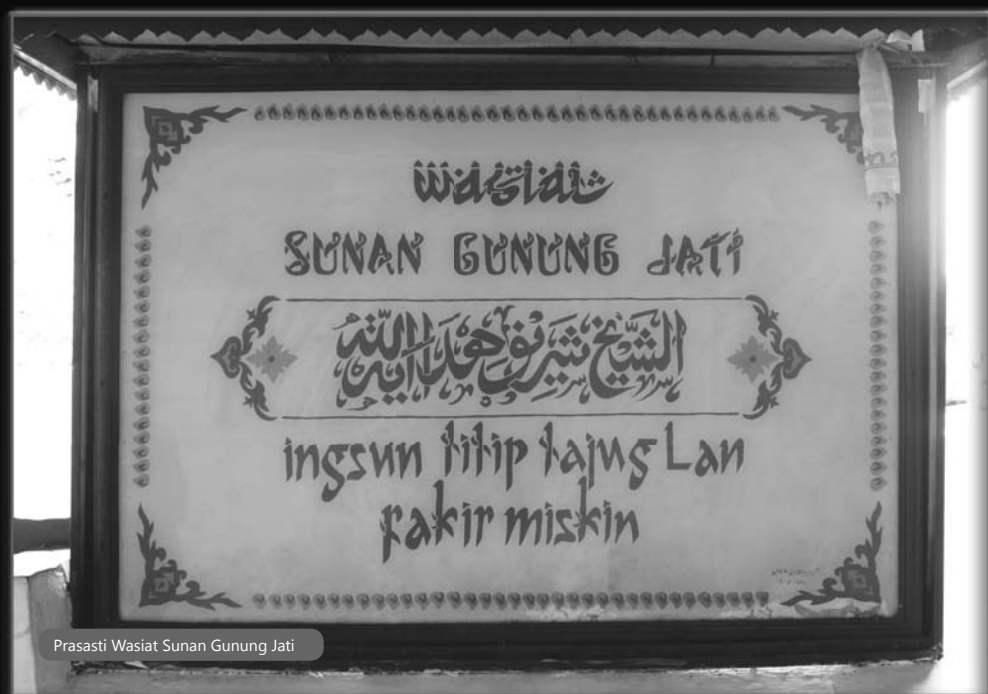 Wasiat
SUNAN GUNUNG JATI
الشَّيْخ شَرِيْف هِدَايَةُ اللهِ
ingsun titip tajug Lan
fakir miskin
Prasasti Wasiat Sunan Gunung Jati